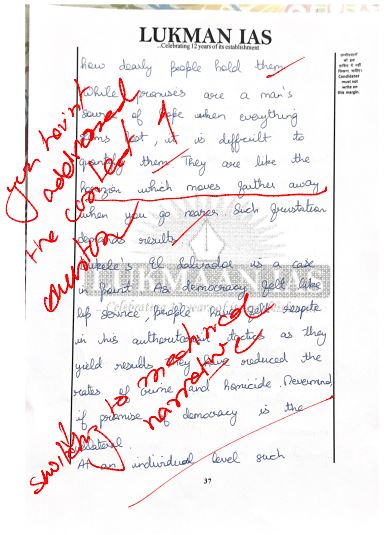 LUKMAN IAS
...Celebrating 12 years of its establishment
how dearly people hold them.
While promises are a man's
source of hope when everything
rot, it is difficult to
quantify them. They are like the
horizon which moves farther away
when you go nearer. Such frustration
results.
El Salvador is a case
in point. As democracy felt like
lip service, people have felt respite
in his authoritarian tactics as they
yield results. They have reduced the
rates of crime and homicide. Nevermind,
if promise of democracy is the
collateral.
At an individual level such
37
you haven't
addressed
the
question
switching to mechanical
narrative
LUKMAAN IAS
Candidates
must not
write on
this margin.